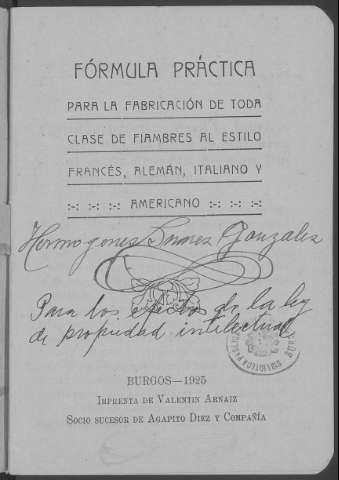 FÓRMULA PRÁCTICA
PARA LA FABRICACIÓN DE TODA
CLASE DE FIAMBRES AL ESTILO
FRANCÉS, ALEMÁN, ITALIANO Y
:-: :-: :-: AMERICANO :-: :-: :-:
Hermogenes Suarez Gonzalez
Para los efectos de la ley
de propiedad intilectual
BURGOS—1925
IMPRENTA DE VALENTIN ARNAIZ
SOCIO SUCESOR DE AGAPITO DIEZ Y COMPAÑÍA
BIBLIOTECA